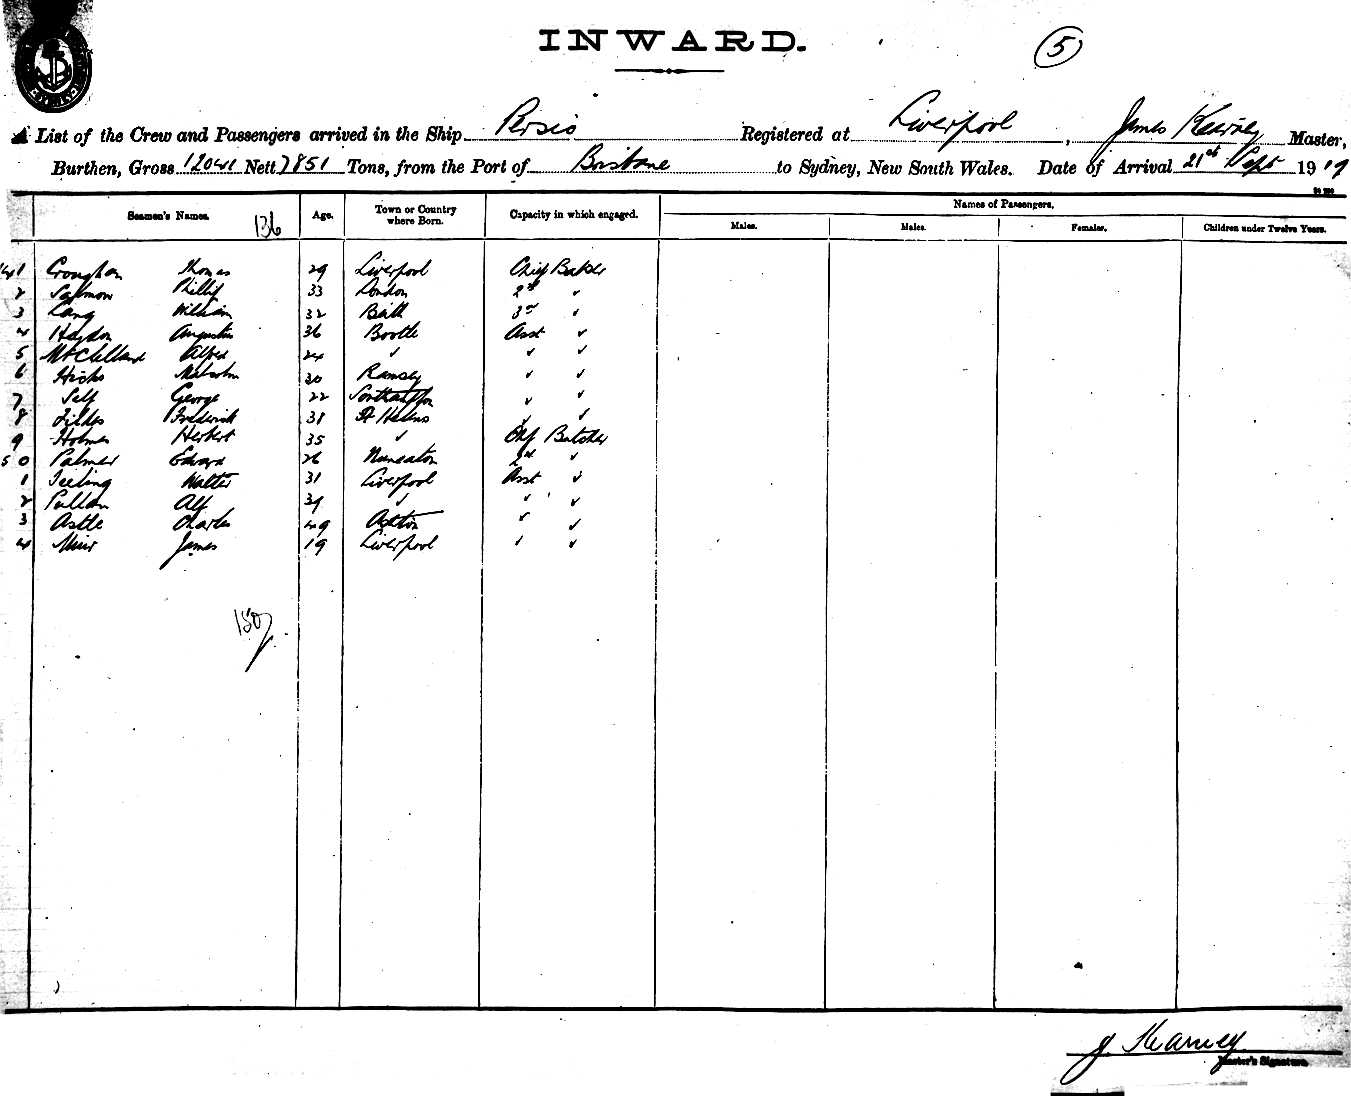 INWARD.
5
List of the Crew and Passengers arrived in the Ship Persic Registered at Liverpool, James Kearney Master,
Burthen, Gross 12041 Nett 7851 Tons, from the Port of Brisbane to Sydney, New South Wales. Date of Arrival 21st Sept 1919
Seamen's Names. 136 Age. Town or Country where Born. Capacity in which engaged. Names of Passengers.
Males. Males. Females. Children under Twelve Years.
141 Croughan Thomas 29 Liverpool Chief Baker
2 Salmon Phillip 33 London 2nd "
3 Lang William 32 3rd "
4 Haydon Augustus 36 Bootle Asst "
5 McClelland Alfred 24 " " "
6 Hicks Malcolm 30 Ramsey " "
7 Self George 22 Southampton " "
8 Fildes Frederick 38 St Helens " "
9 Holmes Herbert 35 " Chf Butcher
50 Palmer Edward 26 Nuneaton 2nd "
1 Walter 31 Liverpool Asst "
2 Alf 39 " " "
3 Astle Charles 49 Ashton " "
4 Muir James 19 Liverpool " "
150
J. Kearney
Master's Signature.